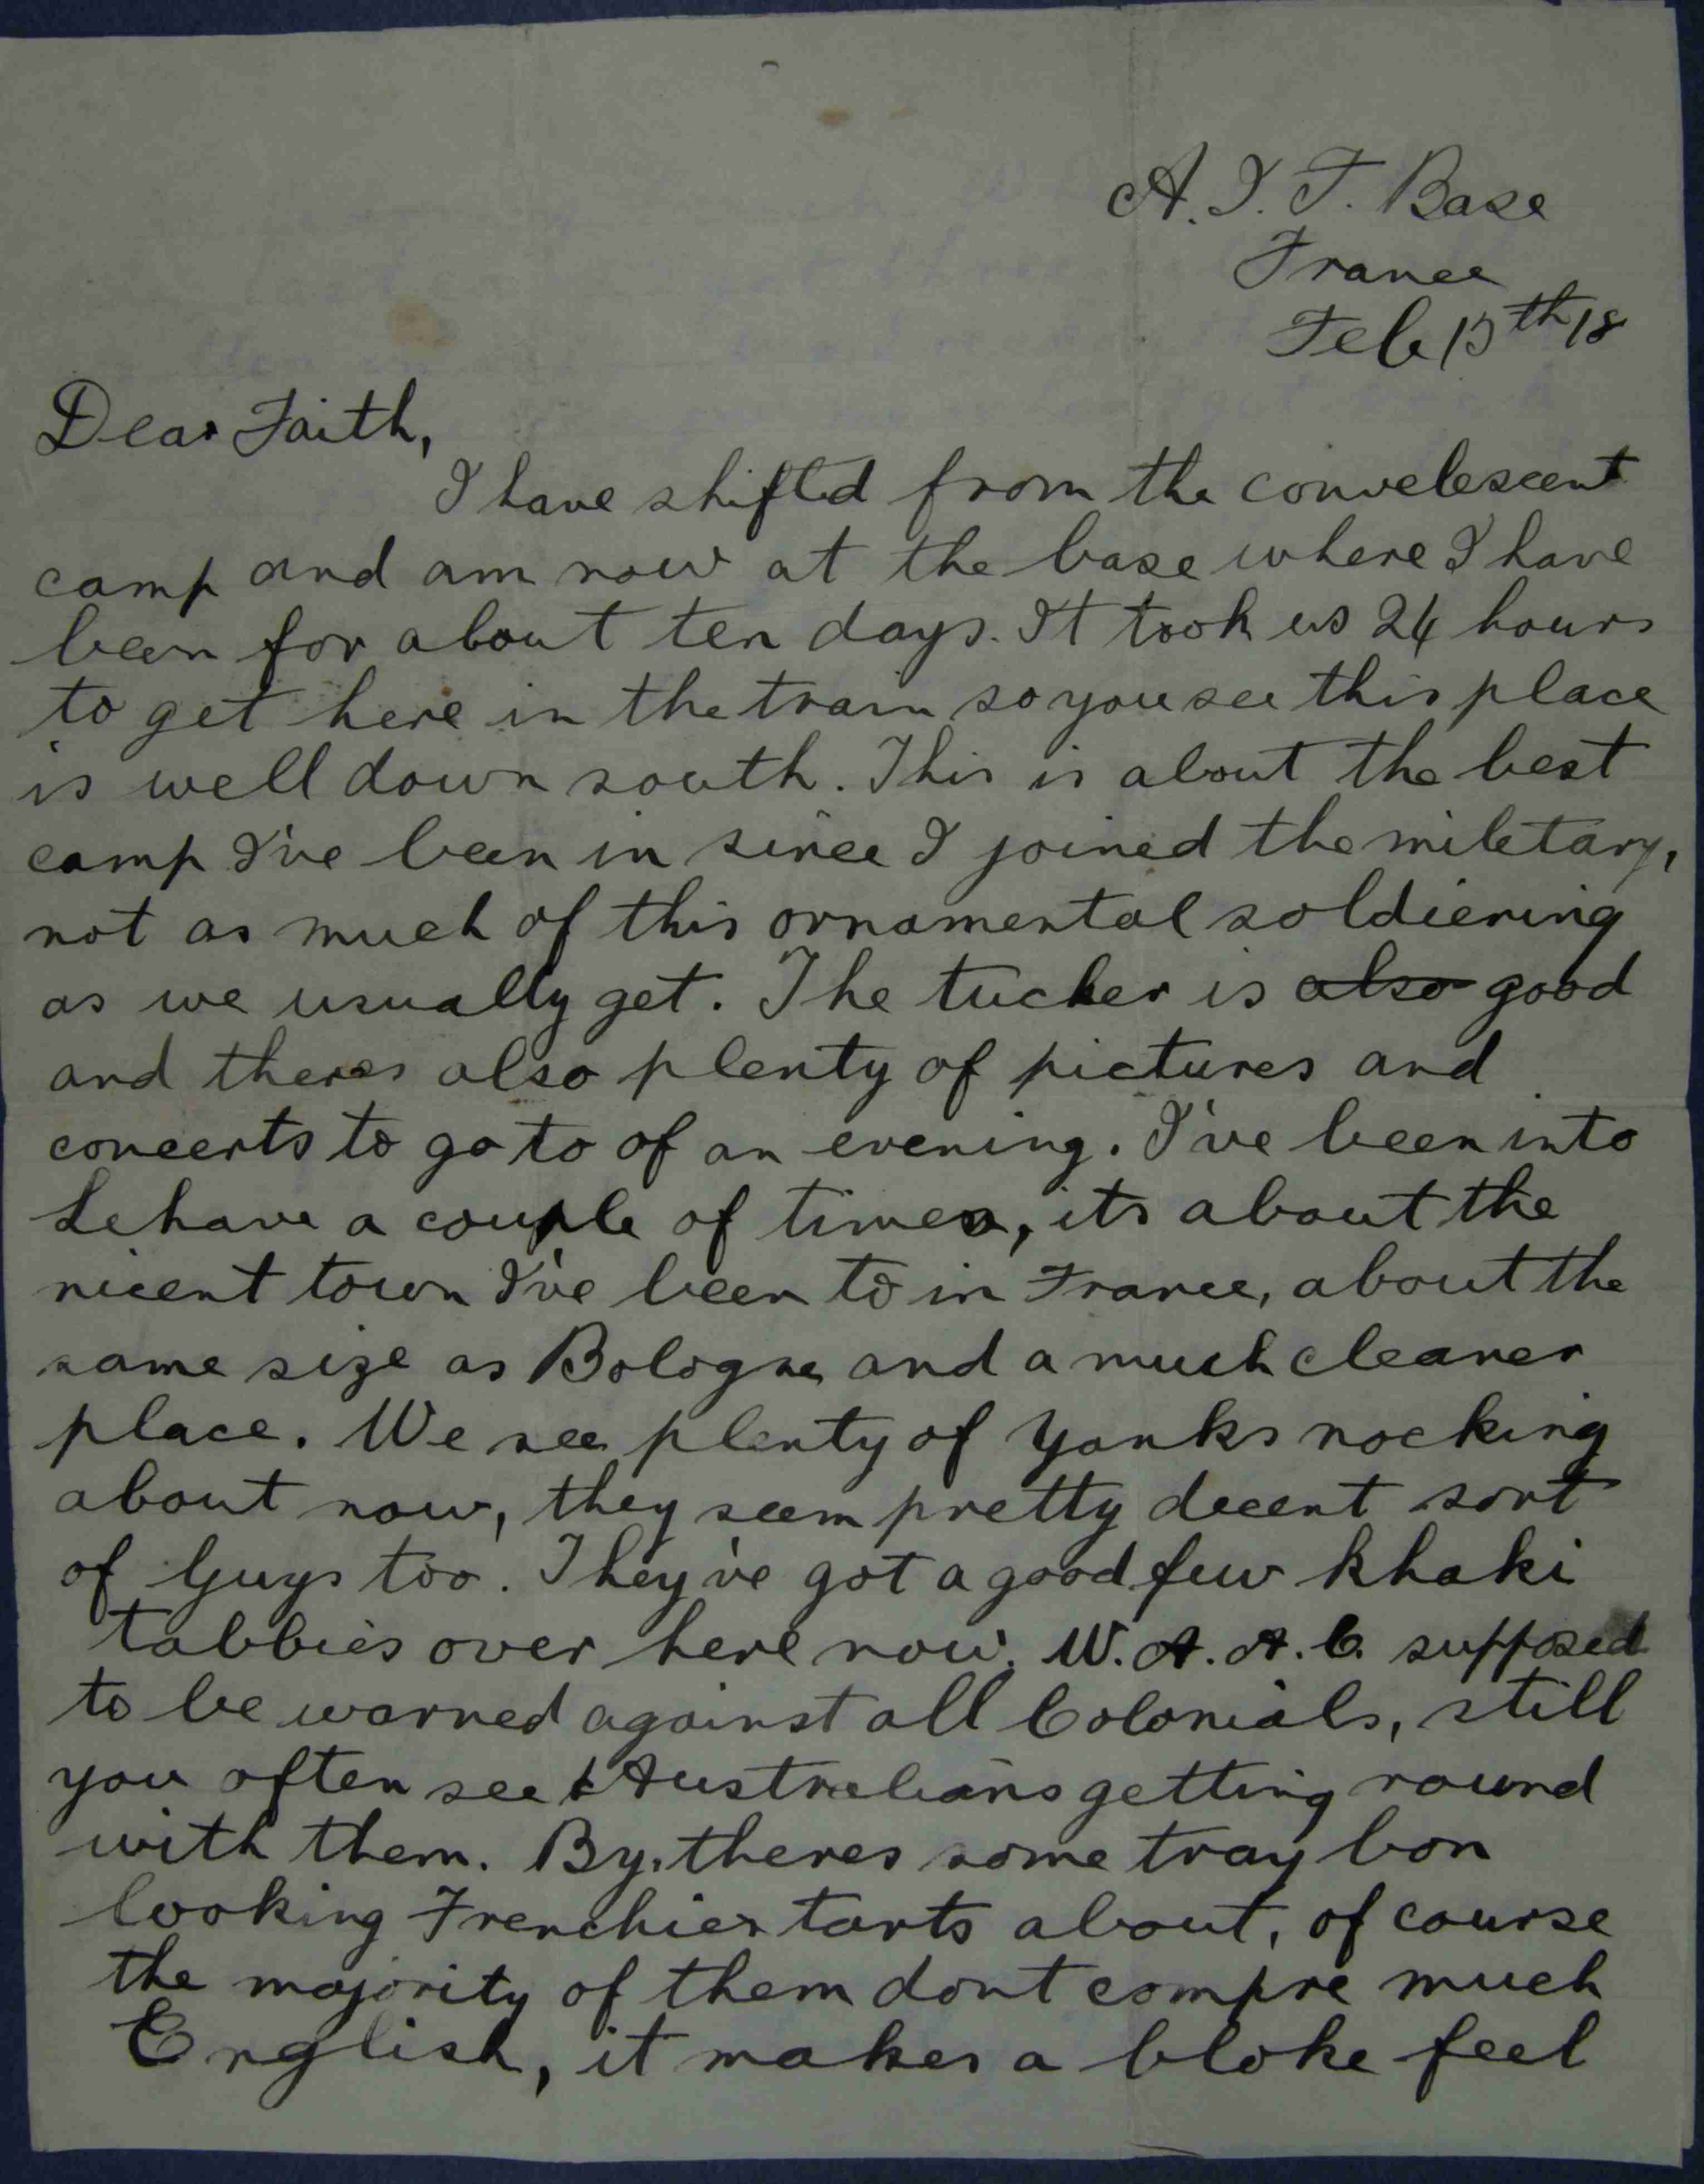 A. I. F. Base
France
Feb 15th 18
Dear Faith,
I have shifted from the convelescent
camp and am now at the base where I have
been for about ten days. It took us 24 hours
to get here in the train so you see this place
is well down south. This is about the best
camp I've been in since I joined the miletary,
not as much of this ornamental soldiering
as we usually get. The tucker is also good
and theres also plenty of pictures and
concerts to go to of an evening. I've been into
Lehave a couple of times, its about the
nicent town I've been to in France, about the
same size as Bologne and a much cleaner
place. We see plenty of Yanks nocking
about now, they seem pretty decent sort
of Guys too. They've got a good few khaki
tabbies over here now. W.A.A.C. supposed
to be warned against all Colonials, still
you often see Australians getting round
with them. By, theres some tray bon
looking Frenchies tarts about, of course
the majority of them dont compre much
English, it makes a bloke feel